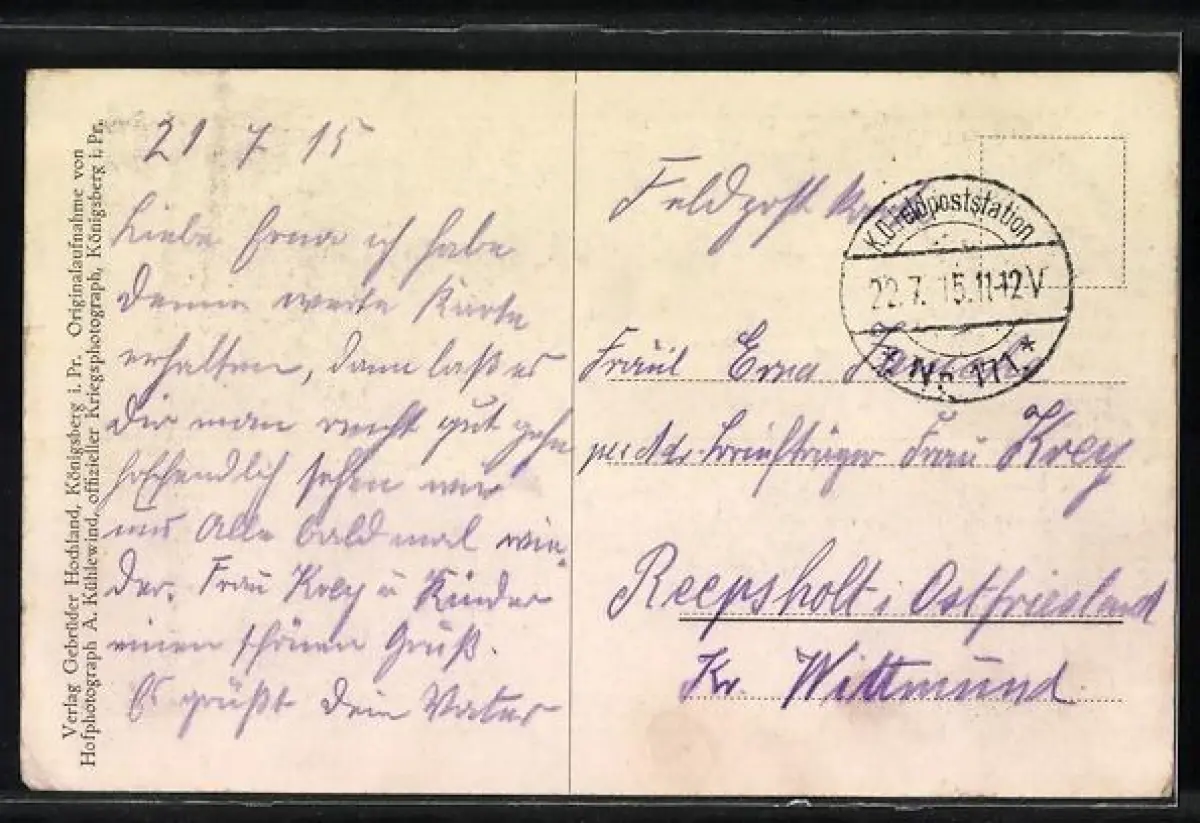 Verlag Gebrüder Hochland, Königsberg i. Pr. Originalaufnahme von
Hofphotograph A. Kühlewind, offizieller Kriegsphotograph, Königsberg i. Pr.
21 7 15
Liebe Erna ich habe
Deine werte Karte
erhalten, dann laß es
Dir man recht gut gehn
hoffendlich sehen wir
uns Alle bald mal wie-
der. Frau Krey u Kinder
einen schönen Gruß.
Es grüßt Dein Vater
Feldpost
K.D. Feldpoststation
22.7.15.11-12V
* Nr. 171. *
Fräul Erna
per Adr Briefträger Frau Krey
Reepsholt i Ostfriesland
Kr. Wittmund